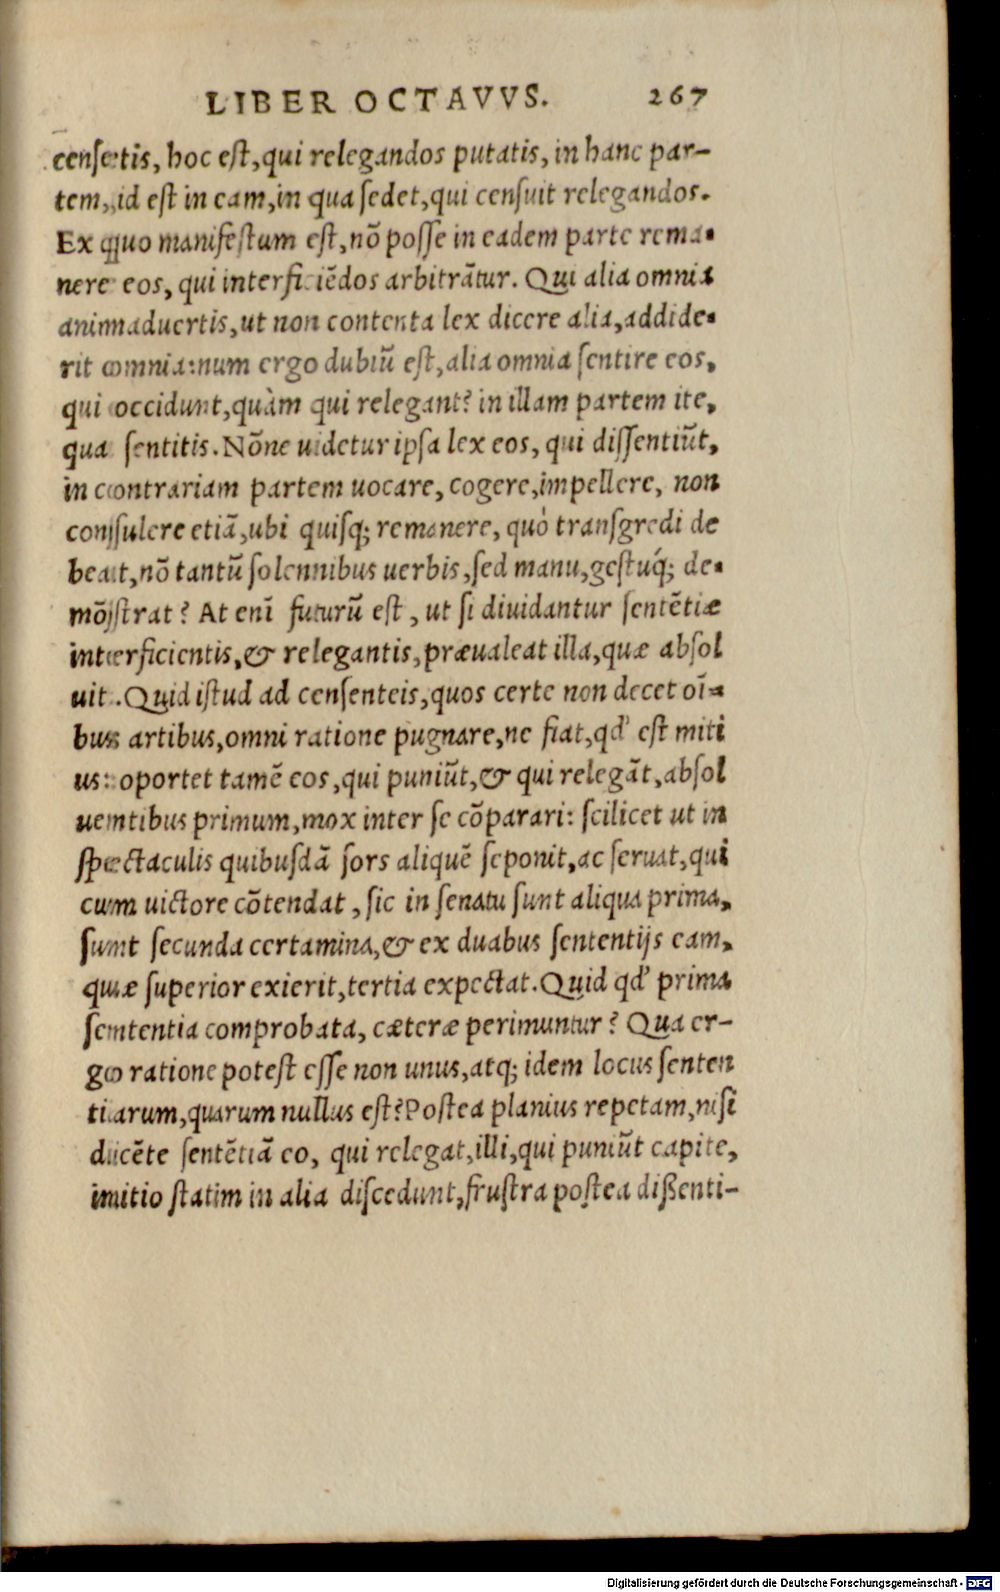 LIBER OCTAVVS. 267
censetis, hoc est, qui relegandos putatis, in hanc par-
tem, id est in eam, in qua sedet, qui censuit relegandos.
Ex quo manifestum est, nõ posse in eadem parte rema-
nere eos, qui interficiẽdos arbitrãtur. Qui alia omnia
animaduertis, ut non contenta lex dicere alia, addide-
rit omnia: num ergo dubiũ est, alia omnia sentire eos,
qui occidunt, quàm qui relegant? in illam partem ite,
qua sentitis. Nõne uidetur ipsa lex eos, qui dissentiũt,
in contrariam partem uocare, cogere, impellere, non
consulere etiã, ubi quisq; remanere, quò transgredi de
beat, nõ tantũ solennibus uerbis, sed manu, gestuq́; de-
mõstrat? At enĩ futurũ est, ut si diuidantur sentẽtiæ
interficientis, & relegantis, præualeat illa, quæ absol
uit. Quid istud ad censenteis, quos certe non decet oĩ-
bus artibus, omni ratione pugnare, ne fiat, qd' est miti
us: oportet tamẽ eos, qui puniũt, & qui relegãt, absol
uentibus primum, mox inter se cõparari: scilicet ut in
spectaculis quibusdã sors aliquẽ seponit, ac seruat, qui
cum uictore cõtendat, sic in senatu sunt aliqua prima,
sunt secunda certamina, & ex duabus sententijs eam,
quæ superior exierit, tertia expectat. Quid qd' prima
sententia comprobata, cæteræ perimuntur? Qua er-
go ratione potest esse non unus, atq; idem locus senten
tiarum, quarum nullus est? Postea planius repetam, nisi
dicẽte sentẽtiã eo, qui relegat, illi, qui puniũt capite,
initio statim in alia discedunt, frustra postea dißenti-
Digitalisierung gefördert durch die Deutsche Forschungsgemeinschaft - DFG